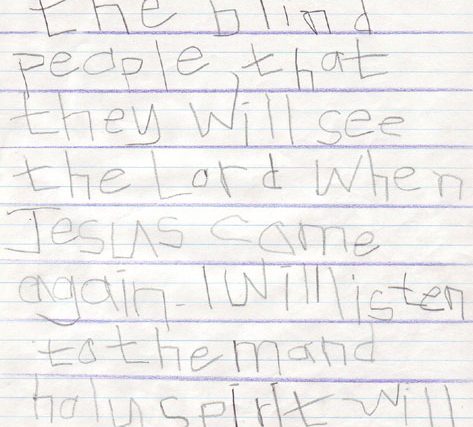 the blind
people, that
they will see
the Lord When
Jesus came
again. I Will listen
to them and
holy spirit will